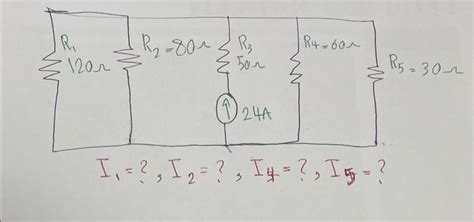 R₁
120Ω
R₂=80Ω
R₃
50Ω
R₄=60Ω
R₅=30Ω
24A
I₁=?, I₂=?, I₄=?, I₅=?